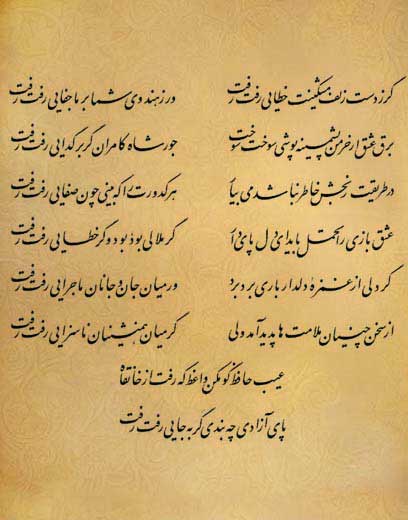 گر ز دست زلف مشکینت خطایی رفت رفت ور ز هندوی شما بر ما جفایی رفت رفت
برق عشق ار خرمن پشمینه پوشی سوخت سوخت جور شاه کامران گر بر گدایی رفت رفت
در طریقت رنجش خاطر نباشد می بیار هر کدورت را که بینی چون صفایی رفت رفت
عشق بازی را تحمل باید ای دل پای دار گر ملالی بود بود و گر خطایی رفت رفت
گر دلی از غمزهٔ دلدار باری برد برد ور میان جان و جانان ماجرایی رفت رفت
از سخن چینان ملامت ها پدید آمد ولی گر میان همنشینان ناسزایی رفت رفت
عیب حافظ گو مکن واعظ که رفت از خانقاه
پای آزادی چه بندی گر به جایی رفت رفت